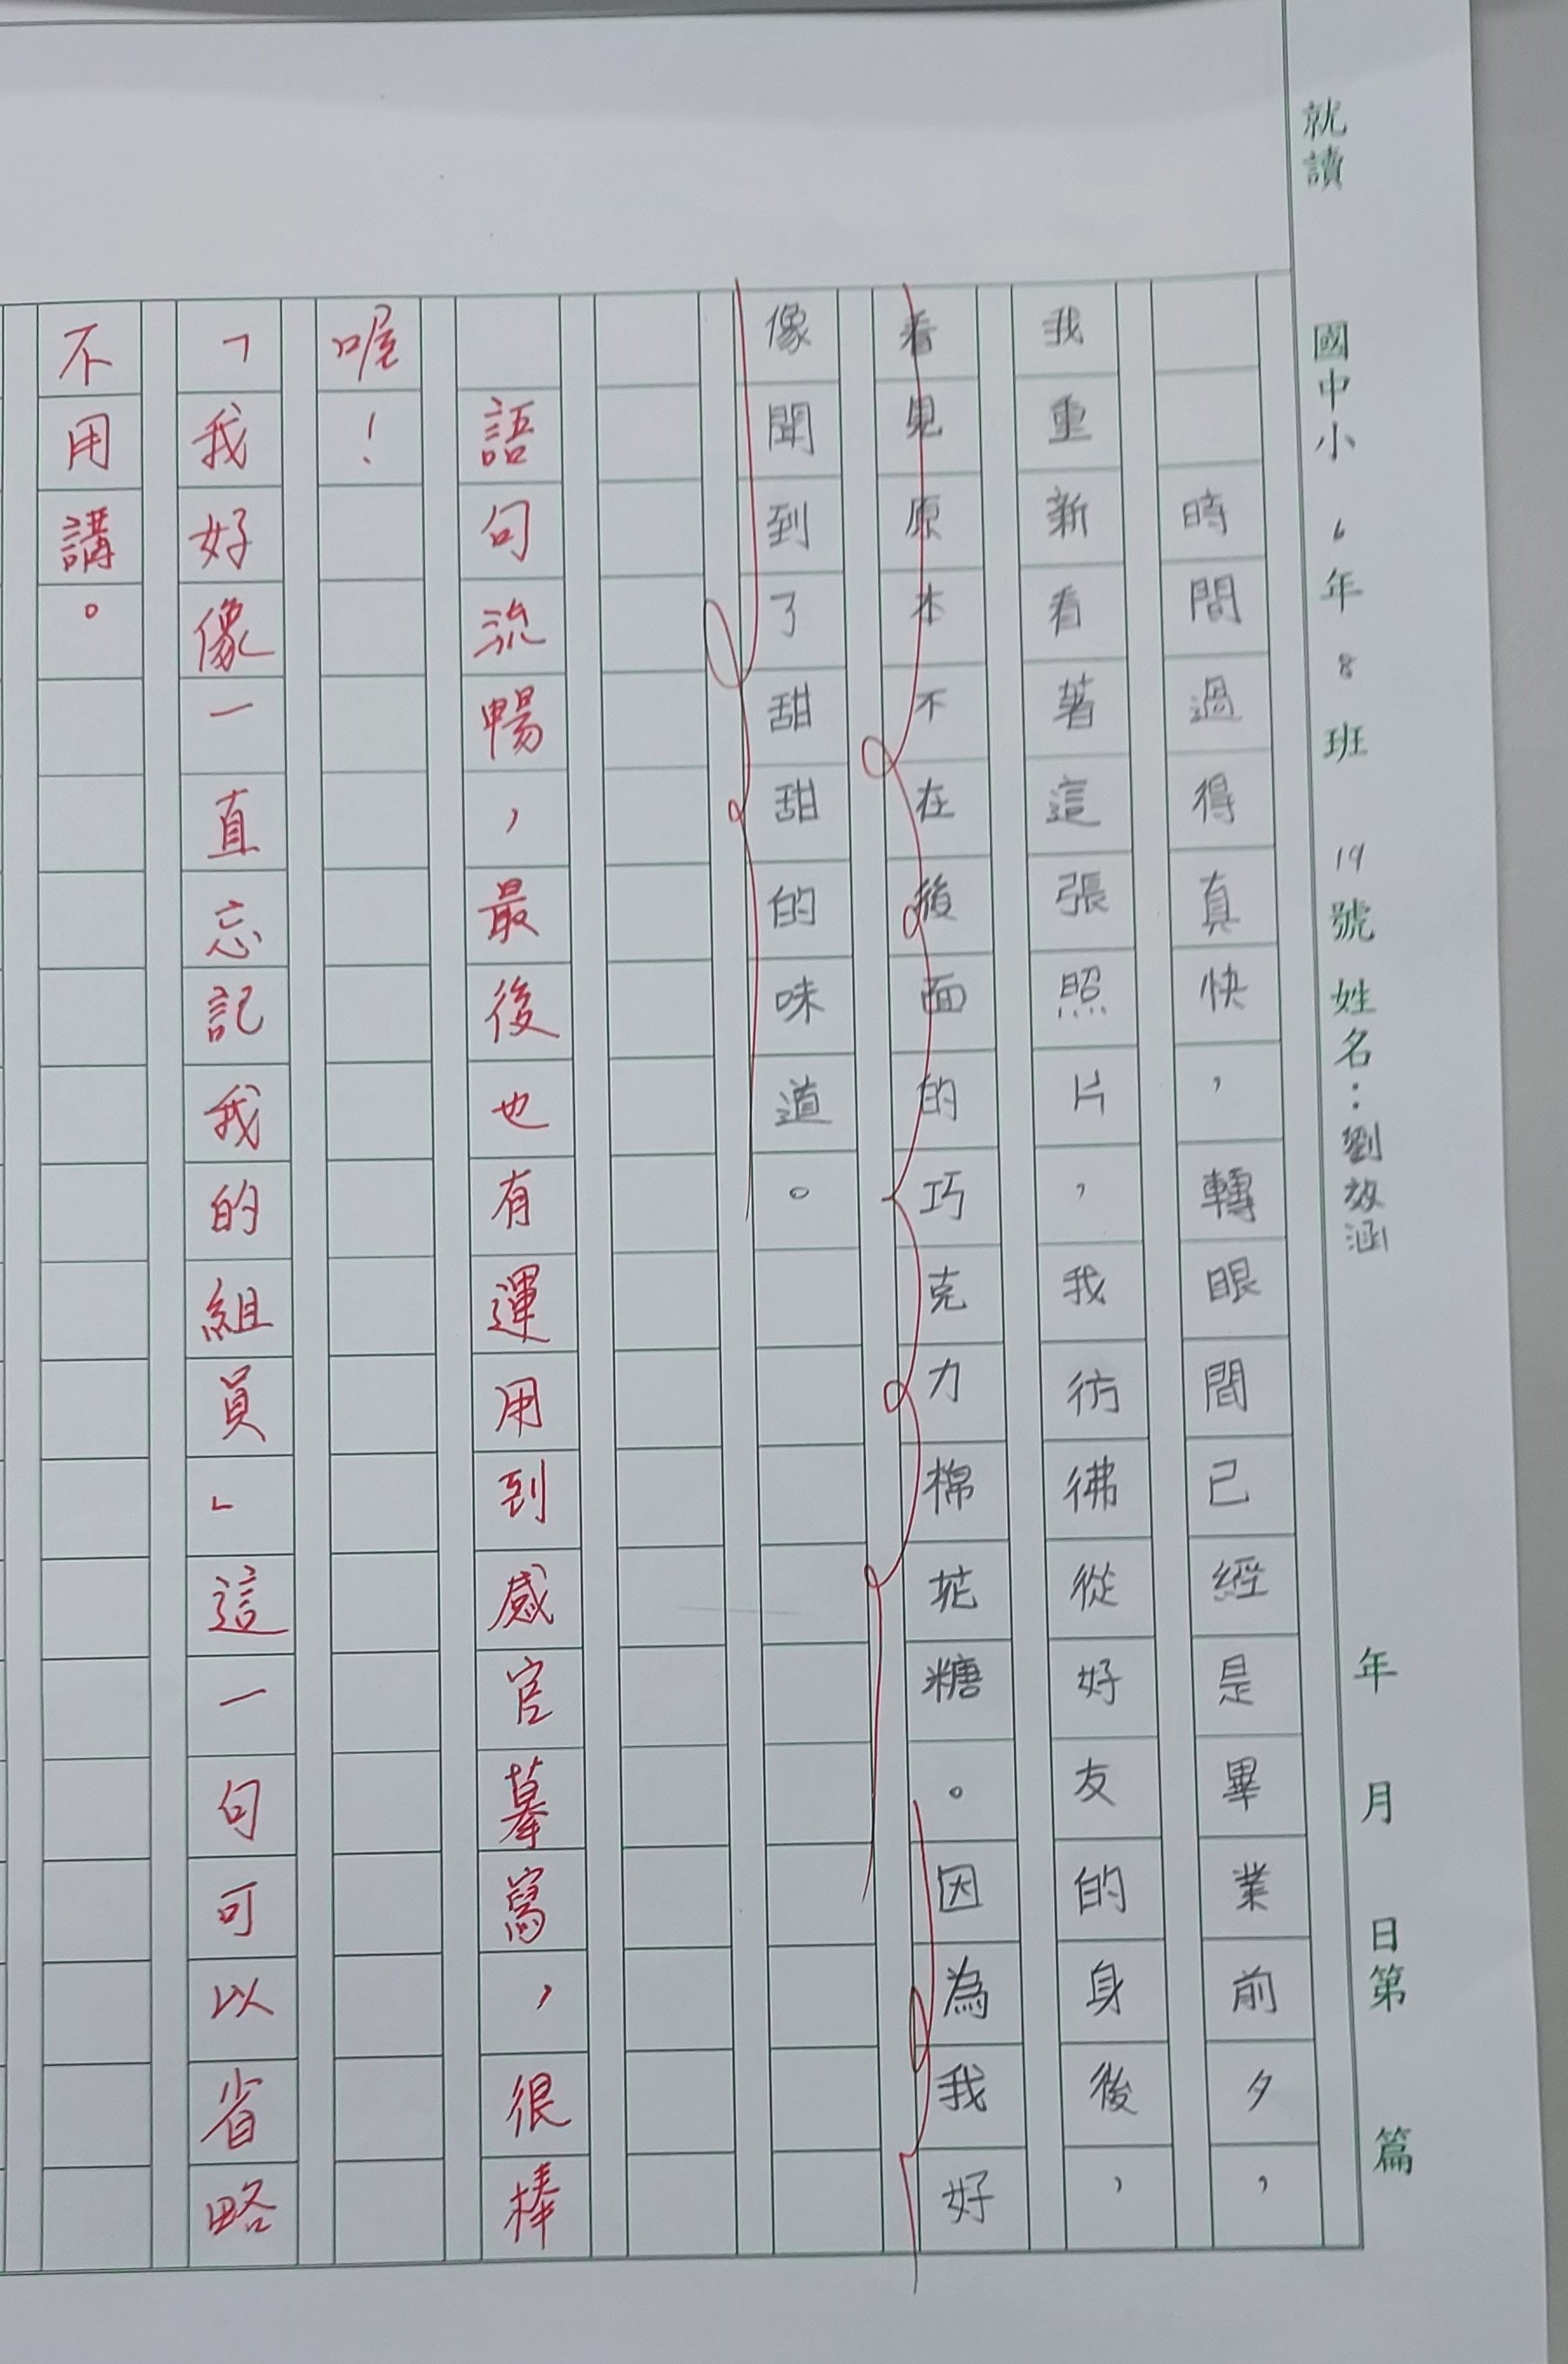 就讀 國中小 6年8班 19號 姓名：劉放涵 年 月 日第 篇
時間過得真快，轉眼間已經是畢業前夕，
我重新看著這張照片，我彷彿從好友的身後，
看見原本不在後面的巧克力棉花糖。因為我好
像聞到了甜甜的味道。
語句流暢，最後也有運用到感官摹寫，很棒
喔！
「我好像一直忘記我的組員」這一句可以省略
不用講。